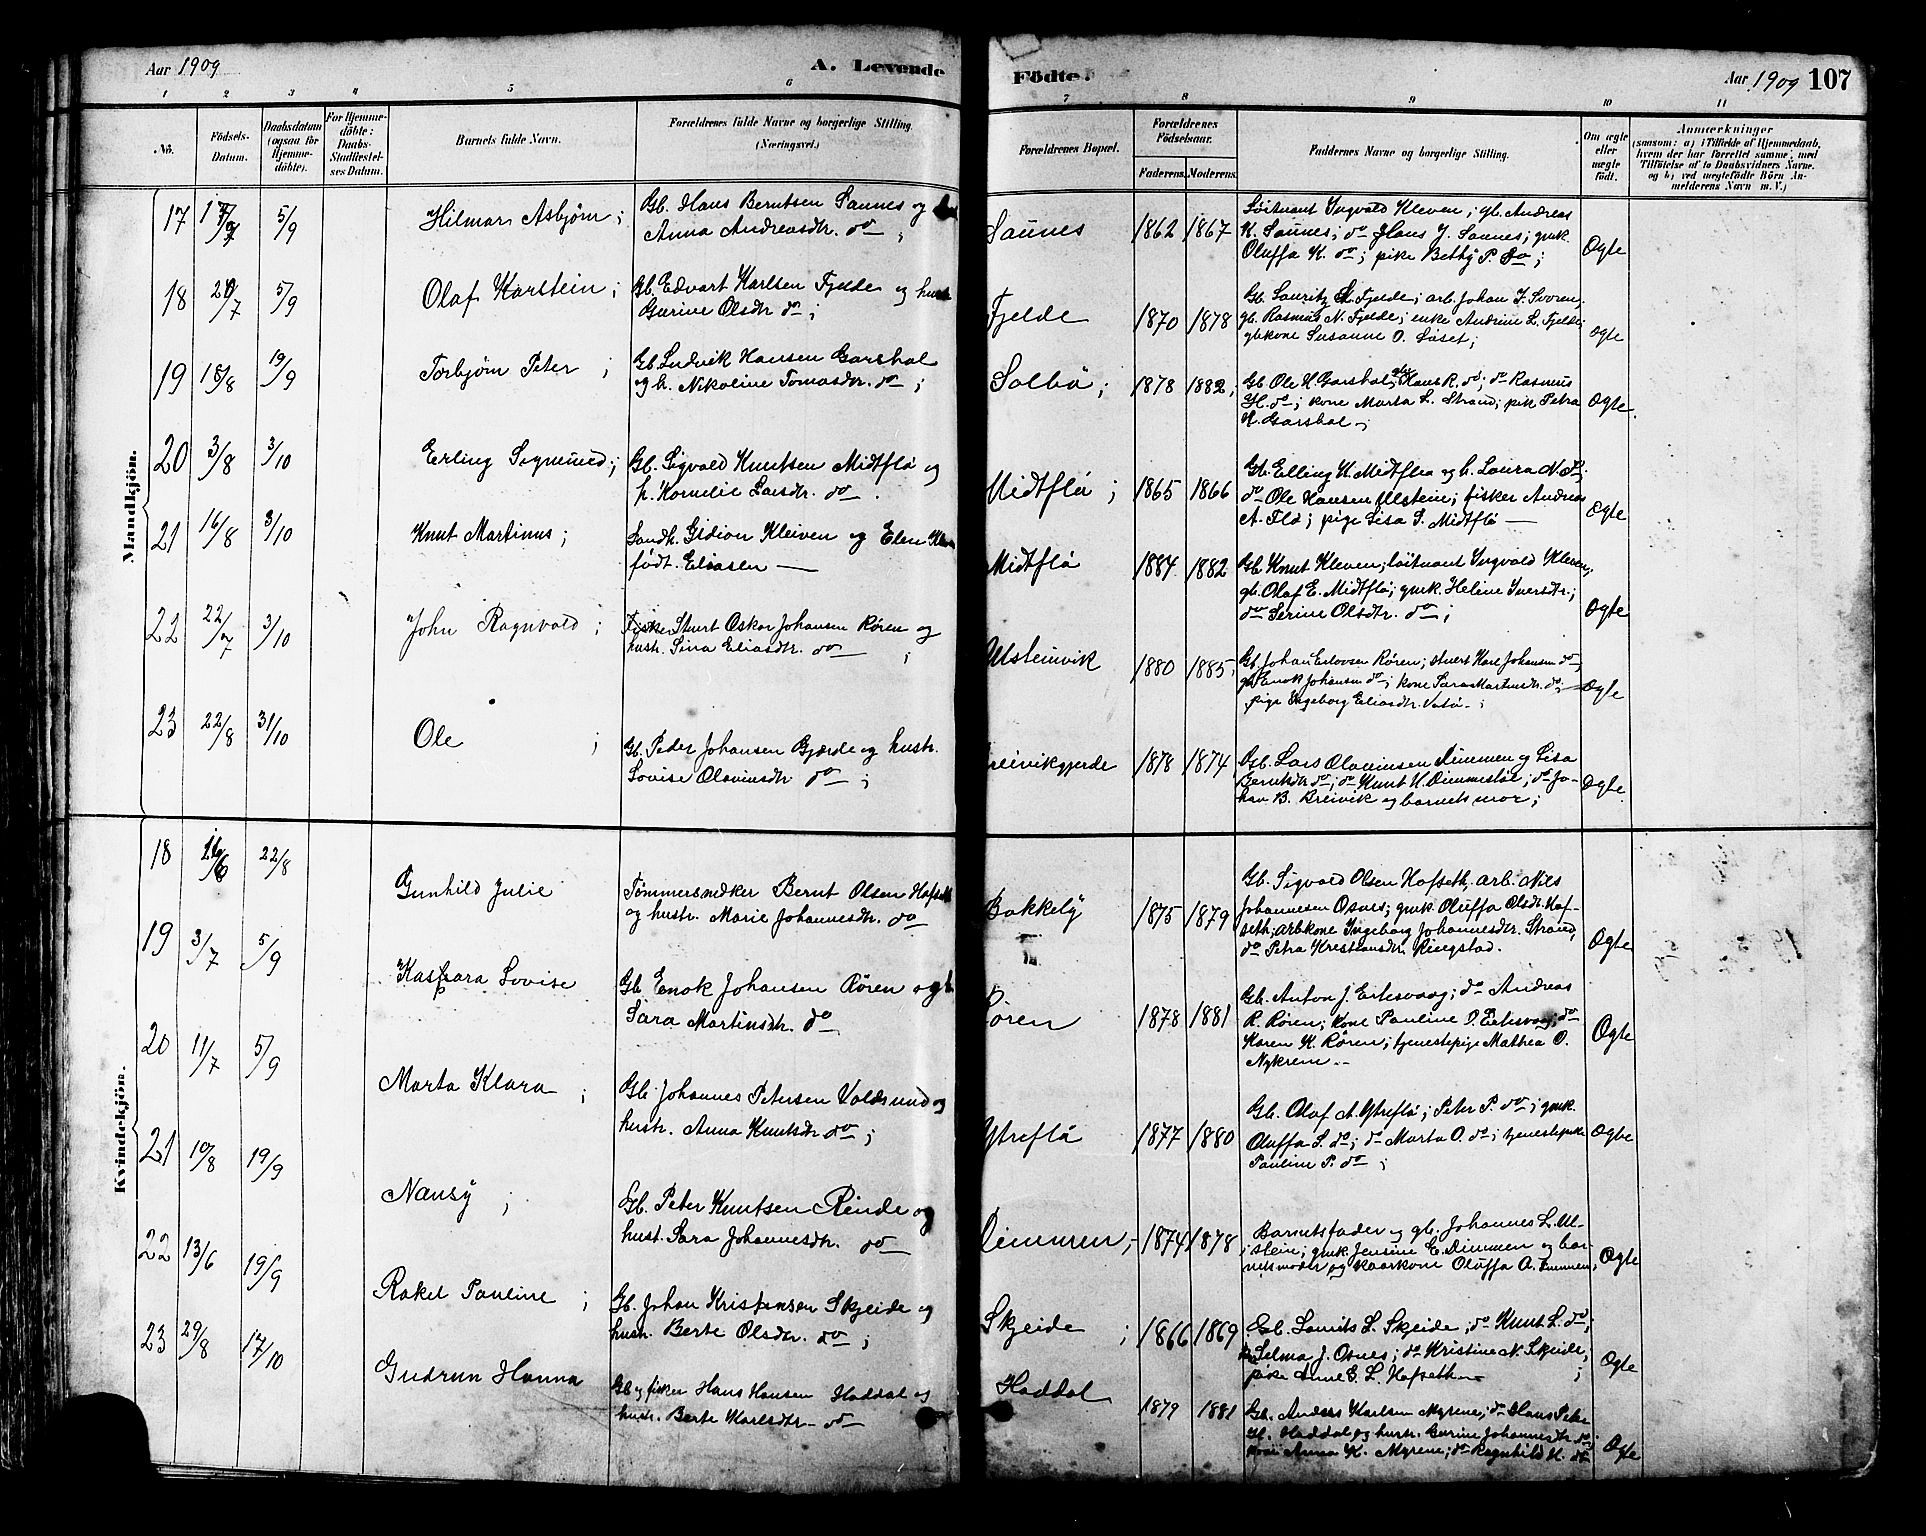 Aar 1909
A. Levende
Födte.
Aar 1909 107
1 2 3 4 5 6 7 8 9 10 11
No. Födsels-Datum. Daabsdatum (ogsaa for Hjemmedöbte). For Hjemmedöbte: Daabs-Stadfæstelses Datum. Barnets fulde Navn. Forældrenes fulde Navne og borgerlige Stilling. (Næringsvei.)
Forældrenes Bopæl. Forældrenes Födselsaar. Faderens. Moderens. Faddernes Navne og borgerlige Stilling. Om ægte eller uægte födt.
Anmærkninger
(saasom: a) i Tilfælde af Hjemmedaab,
hvem der har forrettet samme, med
Tilföielse af to Daabsvidners Navne.
og b) ved uægtefödte Börn An-
melderens Navn m. V.)
Mandkjön.
17 5/9 Hilmar Asbjørn; Gb. Hans Berntsen Saunes og
Anna Andreasdtr. do;
Saunes 1862 1867 Løitnant Ingvald Kleven; gb. Andreas
K. Saunes; do Hans J. Saunes; gmk.
Oluffa K. do; pike Betby P. do; Ogte
18 20/7 5/9 Olaf Karstein; Gb. Edvart Karlsen Fjelde og hustr
Gurine Olsdtr do;
Fjelde 1870 1878 Gb. Lauritz K. Fjelde; arb. Johan J. Svoren;
gb. Rasmus N. Fjelde; enke Andrine L. Fjelde;
gbkone Susanne O. Løset; ogte
19 18/8 19/9 Torbjørn Peter; Gb. Ludvik Hansen Garshol
og h. Nikoline Tomasdtr. do;
Solbø; 1878 1882; Gb. Ole H. Garshol; Hans R. do; do Rasmus
H. do; kone Marta L. Strand; pik Petra
K. Garshol; Ogte.
20 3/8 3/10 Erling Sigmund; Gb. Sigvald Knutsen Midtflø og
h. Kornelie Larsdtr. do.
Midtflø; 1865 1866 Gb. Elling K. Midtflø og h. Laura N. do;
do Ole Hansen Ulstein; fisker Andreas
A. Flø; pige Lisa S. Midtflø — Ogte
21 16/8 3/10 Knut Martinus; Landh. Gidion Kleiven og Elen Kleven
født. Eliasen —
Midtflø 1884 1882 Gb. Knut Kleven; løitnant Ingvald Kleven;
gb. Olaf E. Midtflø; gmk. Heline Iversdtr.;
do Serine Olsdtr. do; Ogte
22 22/7 3/10 John Ragnvald; Fisker Stuert Oskar Johansen Røren og
hustr. Sina Eliasdtr. do;
Ulsteinvik 1880 1885; Gb. Johan Eilovsen Røren; stuert Karl Johansen do;
gb. Enok Johansen do; kone Sara Martinsdtr. do;
pige Ingeborg Eliasdtr. Vatø.; Ogte
23 22/8 31/10 Ole; Gb. Peder Johansen Gjærde og hustr.
Lovise Olavinsdtr do;
Breivikgjerde 1878 1874 Gb. Lars Olavinsen Dimmen og Lisa
Berntsdtr do; do Knut K. Dimmestøl; do Jo-
han B. Breivik og barnets mor; Ogte.
Kvindekjön.
18 22/8 Gunhild Julie Tømmersnedker Bernt Olsen Hofseth
og hustr. Marie Johannesdtr. do
Bakkely 1875 1879 Gb. Sigvald Olsen Hofseth, arb. Nils
Johannesen Osnes; gmk Oluffa Olsdtr. Hof-
seth; arbkone Ingeborg Johannesdtr. Strand,
do Petra Kristiansdtr Ringstad. Ogte
19 3/7 5/9 Kaspara Lovise Gb. Enok Johansen Røren og h
Sara Martinsdtr. do
Røren 1878 1881 Gb. Anton J. Eiksvaag; do Andreas
R. Røren; kone Pauline D. Eiksvaag; do
Karen K. Røren; tjenestepige Mathea O.
Nykrem — Ogte
20 11/7 5/9 Marta Klara; Gb. Johannes Petersen Voldsund og
hustr. Anna Knutsdtr do;
Ytreflø 1877 1880 Gb. Olaf A. Ytreflø; Peter P. do; gmk.
Oluffa S. do; do Marta O. do; tjenestepike
Pauline P. do; Ogte
21 10/8 19/9 Nansy; Gb. Peter Knutsen Rinde og
hust. Sara Johannesdtr. do
Dimmen; 1874 1878 Barnetsfader og gb. Johannes L. Ul-
stein; gmk. Jensine E. Dimmen og bar-
netsmoder og kaarkone Oluffa A. Dimmen, Ogte
22 13/6 19/9 Rakel Pauline; Gb. Johan Kristensen Skjeide og
hustr. Berte Olsdtr. do;
Skjeide; 1866 1869 Gb. Laurits L. Skjeide; do Knut L. do;
Selma J. Osnes; do Kristine N. Skjeide;
pike Anne E. L. Hofseth; Ogte
23 29/8 17/10 Gudrun Hanna Gb og fisker Hans Hansen Haddal og
hustr. Berte Karlsdtr. do
Haddal 1879 1881 Gb. Anders Karlsen Myrene; do Hans Peter
H. Haddal og hustr. Gurine Johannesdtr do;
kone Anna K. Myrene; do Ragnhild H. do Ogte